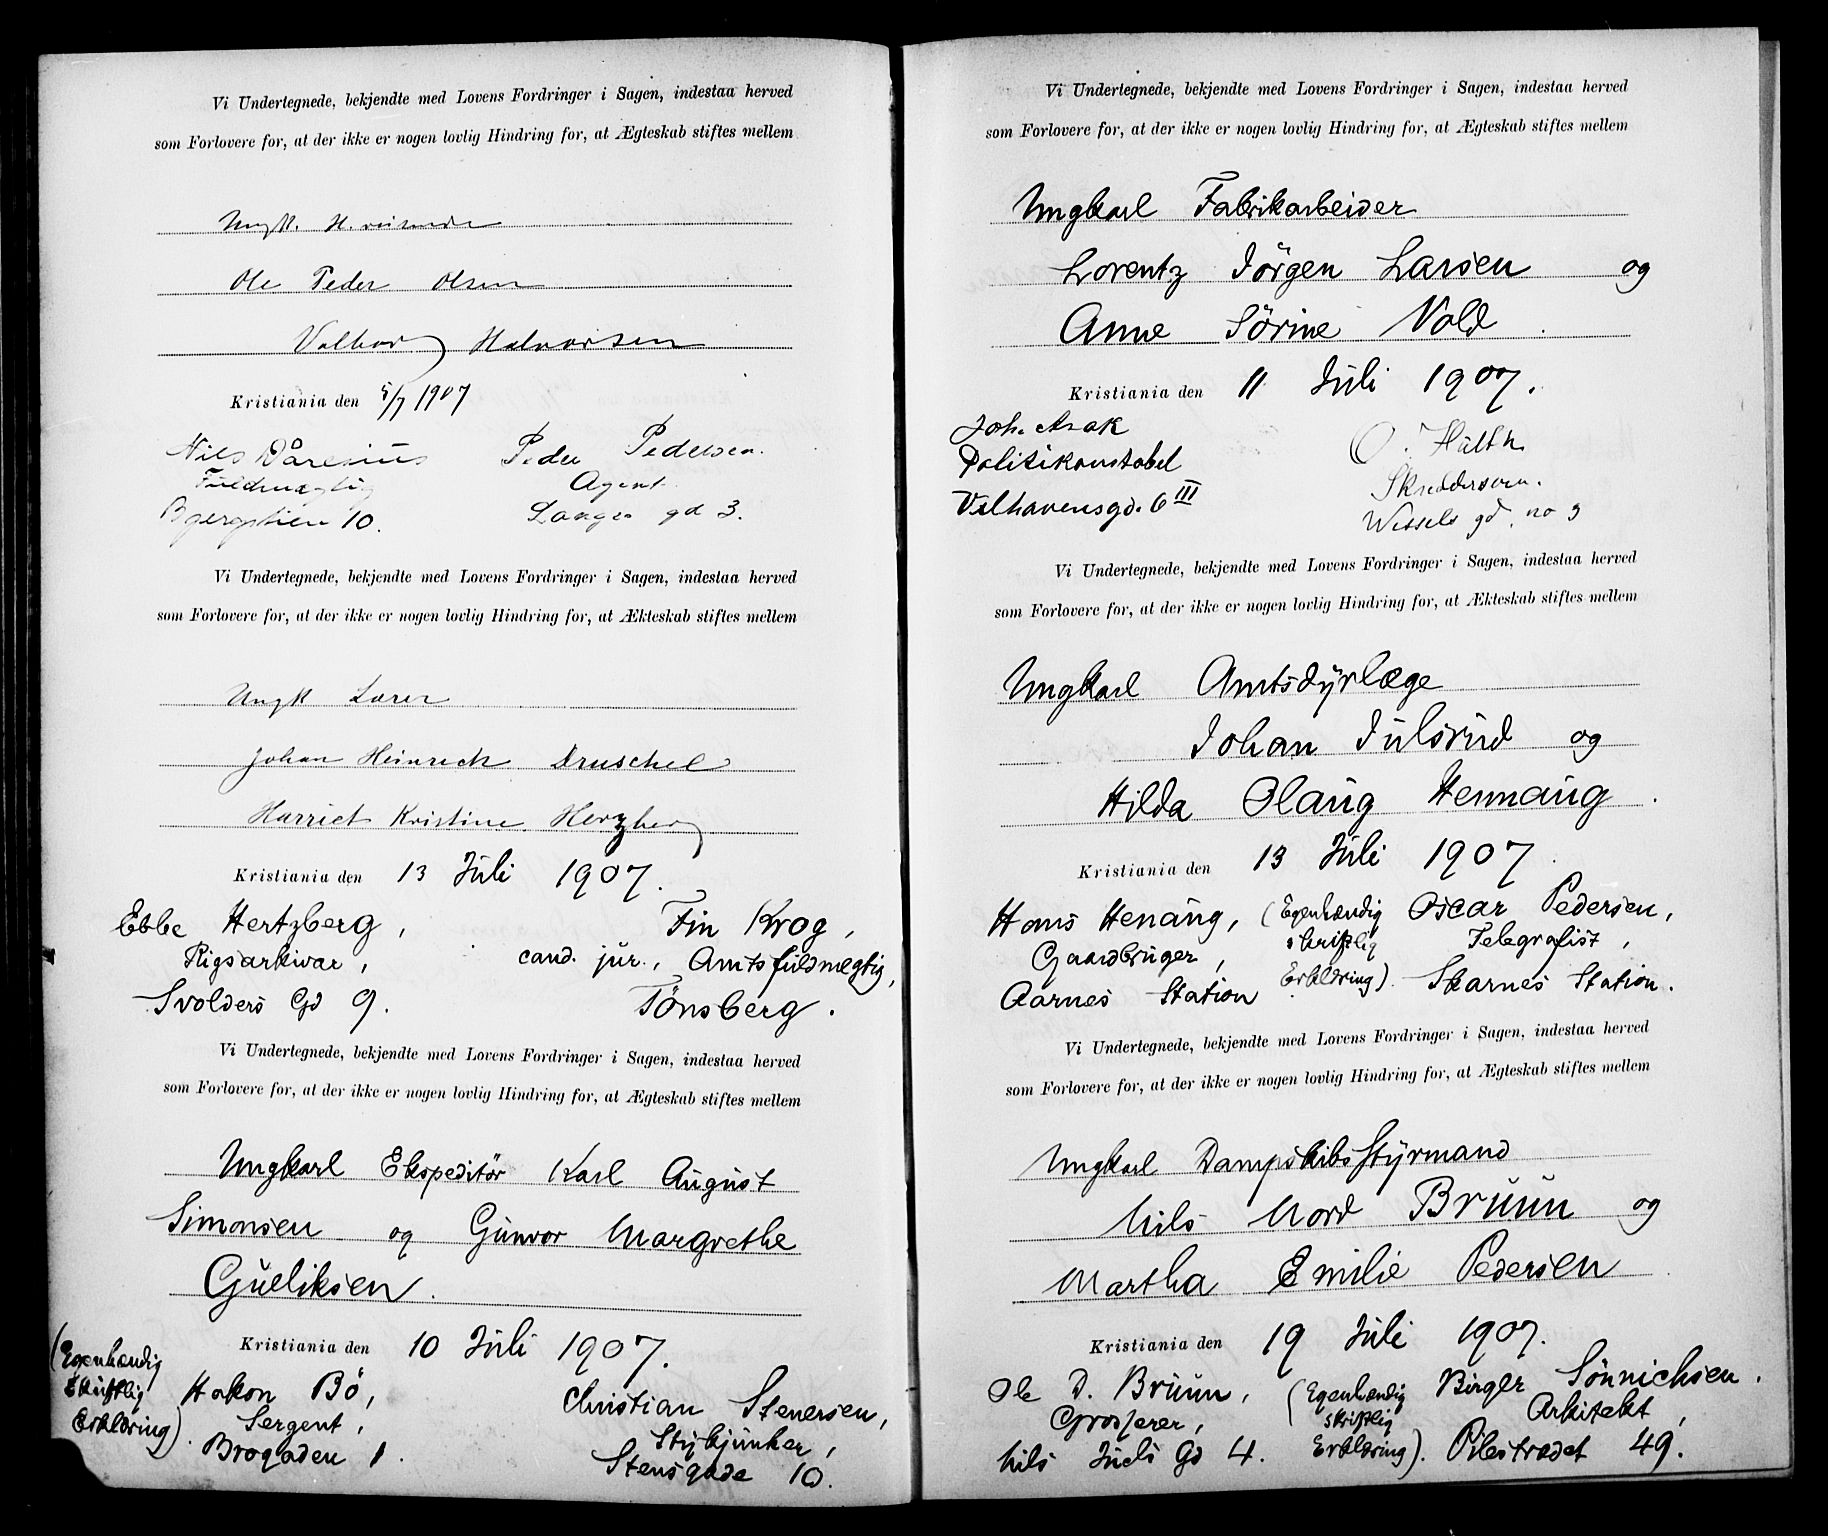 Vi Undertegnede, bekjendte med Lovens Fordringer i Sagen, indestaa herved
som Forlovere for, at der ikke er nogen lovlig Hindring for, at Ægteskab stiftes mellem
Ungk.
Ole Peder Olsen
Valborg Halvorsen
Kristiania den 5/7 1907
Nils Peder Pedersen.
Fuldmægtig Agent.
Bjergstien 10. Langes gd 3.
Vi Undertegnede, bekjendte med Lovens Fordringer i Sagen, indestaa herved
som Forlovere for, at der ikke er nogen lovlig Hindring for, at Ækteskab stiftes mellem
Ungk Lærer
Johan Heinrich Druschel
Harriet Kristine Herzberg
Kristiania den 13 Juli 1907.
Ebbe Hertzberg, Fin Krog,
Rigsarkivar, cand. jur., Amtsfuldmægtig,
Svolders Gd 9. Tønsberg.
Vi Undertegnede, bekjendte med Lovens Fordringer i Sagen, indestaa herved
som Forlovere for, at der ikke er nogen lovlig Hindring for, at Ægteskab stiftes mellem
Ungkarl Ekspeditör Karl August
Simonsen og Gunvor Margrethe
Gulliksen.
Kristiania den 10 Juli 1907.
(Egenhændig
skriftlig Hakon Bö, Christian Stenersen,
Erklæring). Sergent, Stykjunker,
Brogaden 1. Stensgade 10.
Vi Undertegnede, bekjendte med Lovens Fordringer i Sagen, indestaa herved
som Forlovere for, at der ikke er nogen lovlig Hindring for, at Ægteskab stiftes mellem
Ungkarl Fabrikarbeider
Lorentz Jörgen Larsen og
Anne Sörine Vold.
Kristiania den 11 Juli 1907.
Joh. Aak O. Hulth
Politikonstabel Skræddersven.
Velhavensgd. 6 III Wessels gd. no 9
Vi Undertegnede, bekjendte med Lovens Fordringer i Sagen, indestaa herved
som Forlovere for, at der ikke er nogen lovlig Hindring for, at Ækteskab stiftes mellem
Ungkarl Amtsdyrlæge
Johan Julsrud og
Hilda Olaug Hennaug.
Kristiania den 13 Juli 1907
Hans Henaug, (Egenhændig Oscar Pedersen,
Gaardbruger, skriftlig Telegrafist,
Aarnes Station Erklæring). Skarnes Station.
Vi Undertegnede, bekjendte med Lovens Fordringer i Sagen, indestaa herved
som Forlovere for, at der ikke er nogen lovlig Hindring for, at Ægteskab stiftes mellem
Ungkarl Dampskibsstyrmand
Nils Nord Bruun og
Martha Emilie Pedersen
Kristiania den 19 Juli 1907.
Ole D. Bruun, (Egenhændig Birger Sönnichsen.
Grosserer, skriftlig Arkitekt,
Nils Juels Gd 4. Erklæring). Pilestrædet 49.